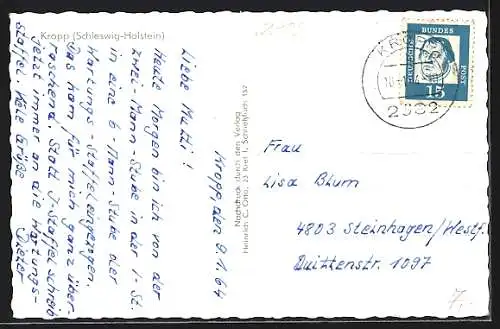 Kropp (Schleswig-Holstein)
Kropp, den 9.1.64
Liebe Mutti!
Heute Morgen bin ich von der
zwei-Mann-Stube in der J-St.
in eine 6-Mann-Stube der
Wartungs-Staffel eingezogen.
Das kam für mich ganz über-
raschend. Statt J-Staffel schreib
jetzt immer an die Wartungs-
staffel. Viele Grüße
Dieter
Nachdruck durch den Verlag
Heinrich C. Otto, 23 Kiel 1, Schließfach 157
KRO
2382
DEUTSCHE
BUNDES
POST
15
Frau
Lisa Blum
4803 Steinhagen/Westf.
Duittenstr. 1097
7,-